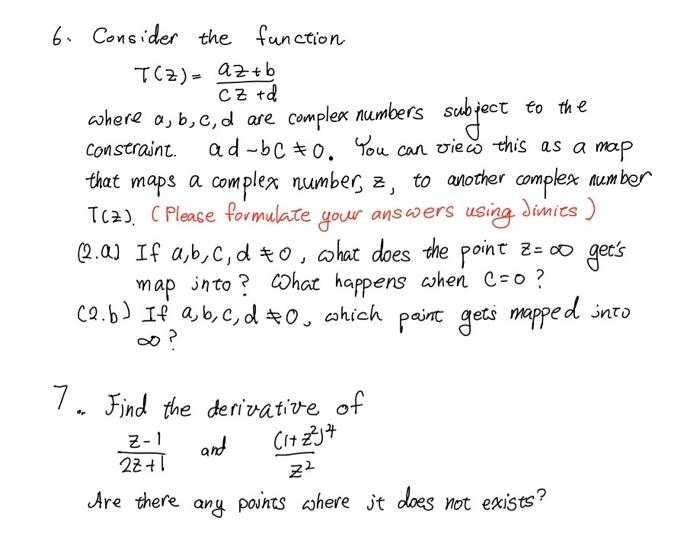 6. Consider the function
T(z) = az+b
cz+d
where a, b, c, d are complex numbers subject to the
constraint. ad-bc ≠ 0. You can view this as a map
that maps a complex number, z, to another complex number
T(z). (Please formulate your answers using limits)
(2.a) If a,b,c,d ≠ 0, what does the point z=∞ get's
map into? What happens when c=0?
(2.b) If a,b,c,d ≠ 0, which point gets mapped into
∞?
7. Find the derivative of
z-1 / 2z+1 and (1+z²)⁴ / z²
Are there any points where it does not exists?